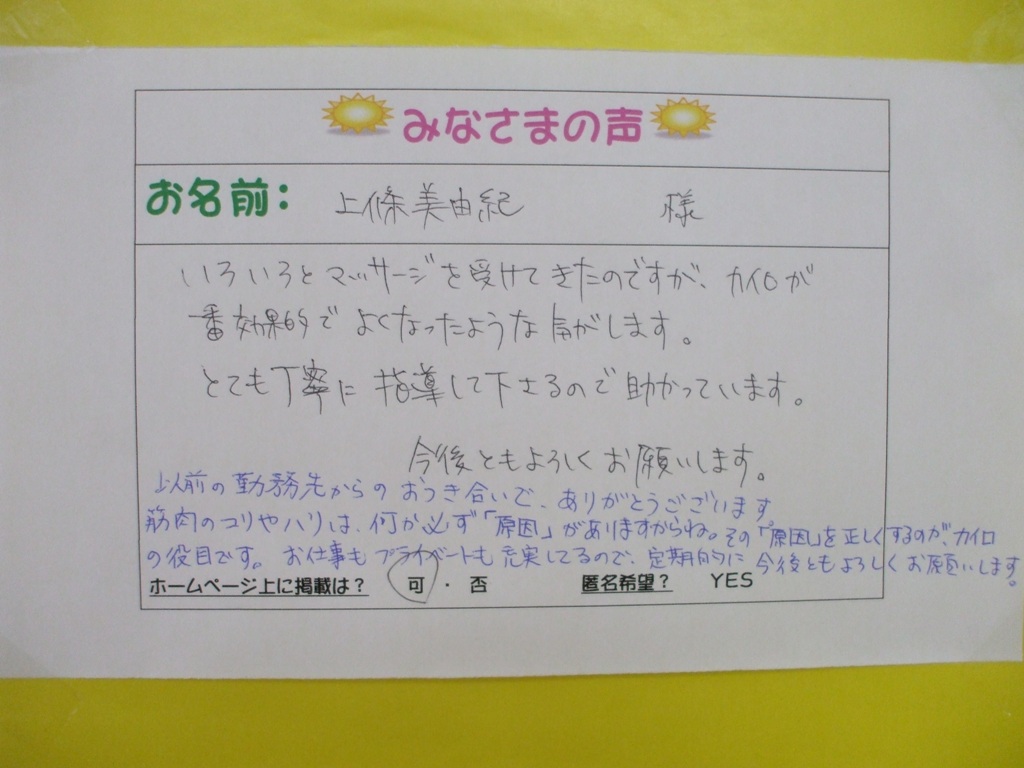 みなさまの声
お名前： 上條美由紀 様
いろいろとマッサージを受けてきたのですが、カイロが
一番効果的でよくなったような気がします。
とても丁寧に指導して下さるので助かっています。
今後ともよろしくお願いします。
以前の勤務先からのおつき合いで、ありがとうございます
筋肉のコリやハリは、何か必ず「原因」がありますからね。その「原因」を正しくするのが、カイロ
の役目です。お仕事もプライベートも充実してるので、定期的に今後ともよろしくお願いします。
ホームページ上に掲載は？ 可 ・ 否 匿名希望？ YES